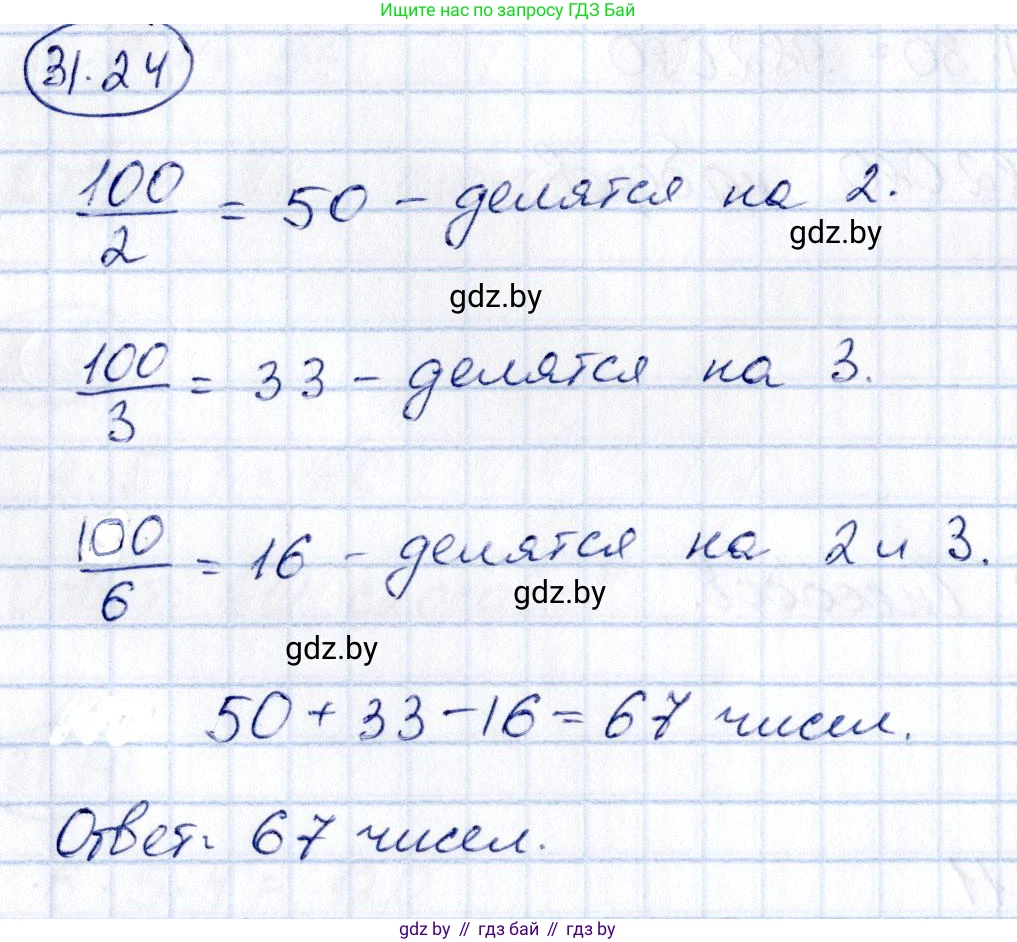 Ищите нас по запросу ГДЗ Бай
31.24
100/2 = 50 – делятся на 2.
gdz.by
gdz.by
100/3 = 33 – делятся на 3.
100/6 = 16 – делятся на 2 и 3.
gdz.by
gdz.by
50 + 33 – 16 = 67 чисел.
Ответ: 67 чисел.
gdz.by // гдз бай // гдз by